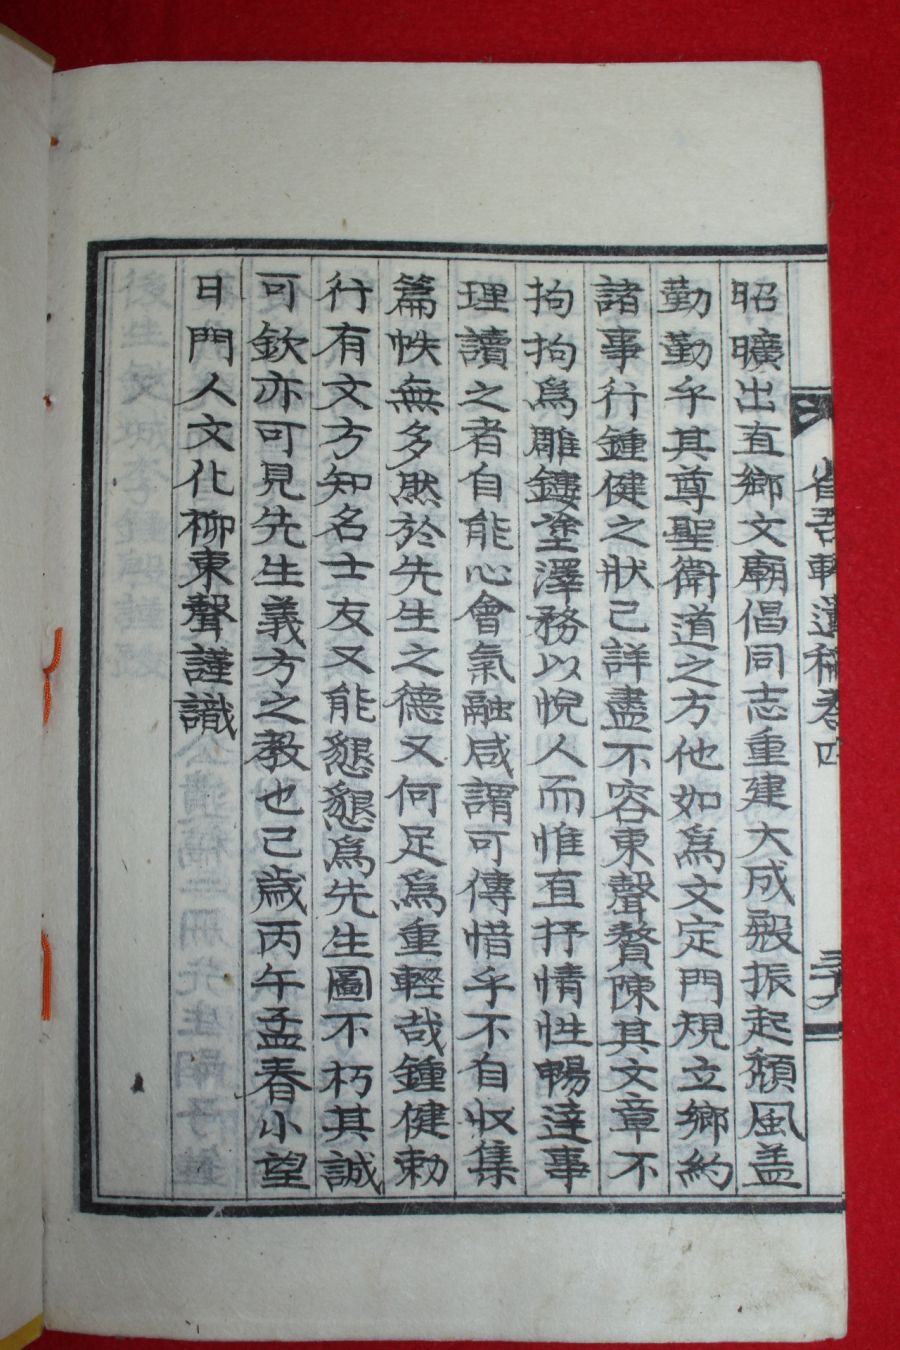 省吾軒遺稿卷四
三十九
昭曠出直鄉文廟倡同志重建大成殿振起頹風盖
勤勤乎其尊聖衛道之方他如爲文定門規立鄉約
諸事行鍾健之狀已詳盡不容東聲贅陳其文章不
拘拘爲雕鏤塗澤務以悅人而惟直抒情性暢達事
理讀之者自能心會氣融咸謂可傳惜乎不自收集
篇帙無多然於先生之德又何足爲重輕哉鍾健勅
行有文方知名士友又能懇懇爲先生圖不朽其誠
可欽亦可見先生義方之敎也已歲丙午孟春小望
日門人文化柳東聲謹識